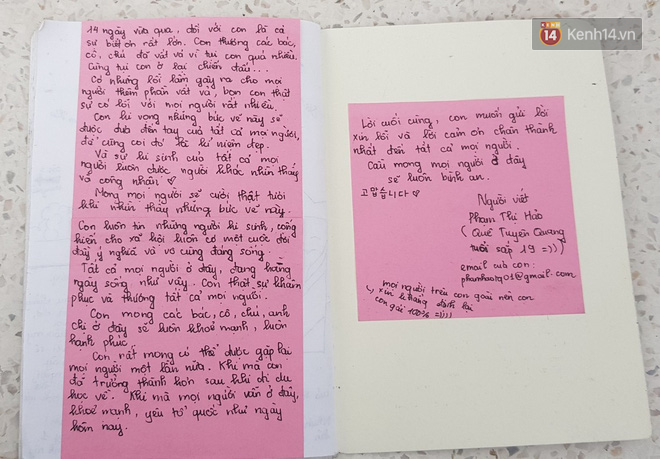 14 ngày vừa qua, đối với con là cả
sự biết ơn rất lớn. Con thương các bác,
cô, chú đã vất vả vì tụi con quá nhiều.
Cũng tụi con ở lại chiến đấu...
Có những lỗi lầm gây ra cho mọi
người thêm phần vất vả, bọn con thật
sự có lỗi với mọi người rất nhiều.
Con hi vọng những bức vẽ này sẽ
được đưa đến tay của tất cả mọi người,
đó cũng coi đó là kỉ niệm đẹp.
Và sự hi sinh của tất cả mọi
người luôn được người khác nhìn thấy
và công nhận ♡
Mong mọi người sẽ cười thật tươi
khi nhìn thấy những bức vẽ này.
Con luôn tin những người hi sinh, cống
hiến cho xã hội luôn có một cuộc đời
đầy ý nghĩa và vô cùng đáng sống.
Tất cả mọi người ở đây, đang hằng
ngày sống như vậy. Con thật sự khâm
phục và thương tất cả mọi người.
Con mong các bác, cô, chú, anh
chị ở đây sẽ luôn khoẻ mạnh, luôn
hạnh phúc.
Con rất mong có thể được gặp lại
mọi người một lần nữa. Khi mà con
đã trưởng thành hơn sau khi đi du
học về. Khi mà mọi người vẫn ở đây,
khoẻ mạnh, yêu tổ quốc như ngày
hôm nay.
Lời cuối cùng, con muốn gửi lời
xin lỗi và lời cảm ơn chân thành
nhất đến tất cả mọi người.
Cầu mong mọi người ở đây
sẽ luôn bình an.
고맙습니다 ♡
Người viết
Phạm Thị Hảo
(Quê Tuyên Quang
tuổi sắp 19 =))
email của con:
phamhao1901@gmail.com
mọi người trêu con gái nên con
xin khẳng định lại
con gái 100% =)))
14 Kenh14.vn